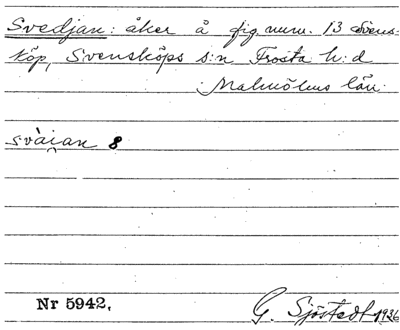 Svedjan: åker å fig. num. 13 Svens-
köp, Svensköps s:n Frosta h:d
Malmöhus län.
svàjan 8
Nr 5942,
G. Sjöstedt 1936